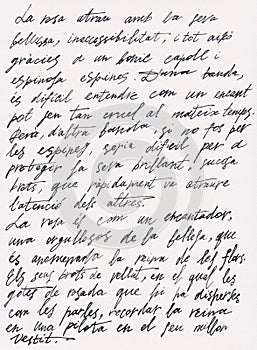 La rosa atrau amb la seva
bellesa, inaccessibilitat, i tot això
gràcies a un bonic capoll i
espinosa espines. D'una banda,
és difícil entendre com un encant
pot ser tan cruel al mateix temps.
Però, d'altra banda, si no fos per
les espines, seria difícil per a
protegir la seva brillant,
brots, que ràpidament va atraure
l'atenció dels altres.
La rosa és com un encantador,
una orgullosa de la bellesa, que
és anomenada la reina de les flors.
Els seus brots de vellut, en el qual les
gotes de rosada que hi ha disperses
com les perles, recordar la reina
en una pilota en el seu millor
vestit.